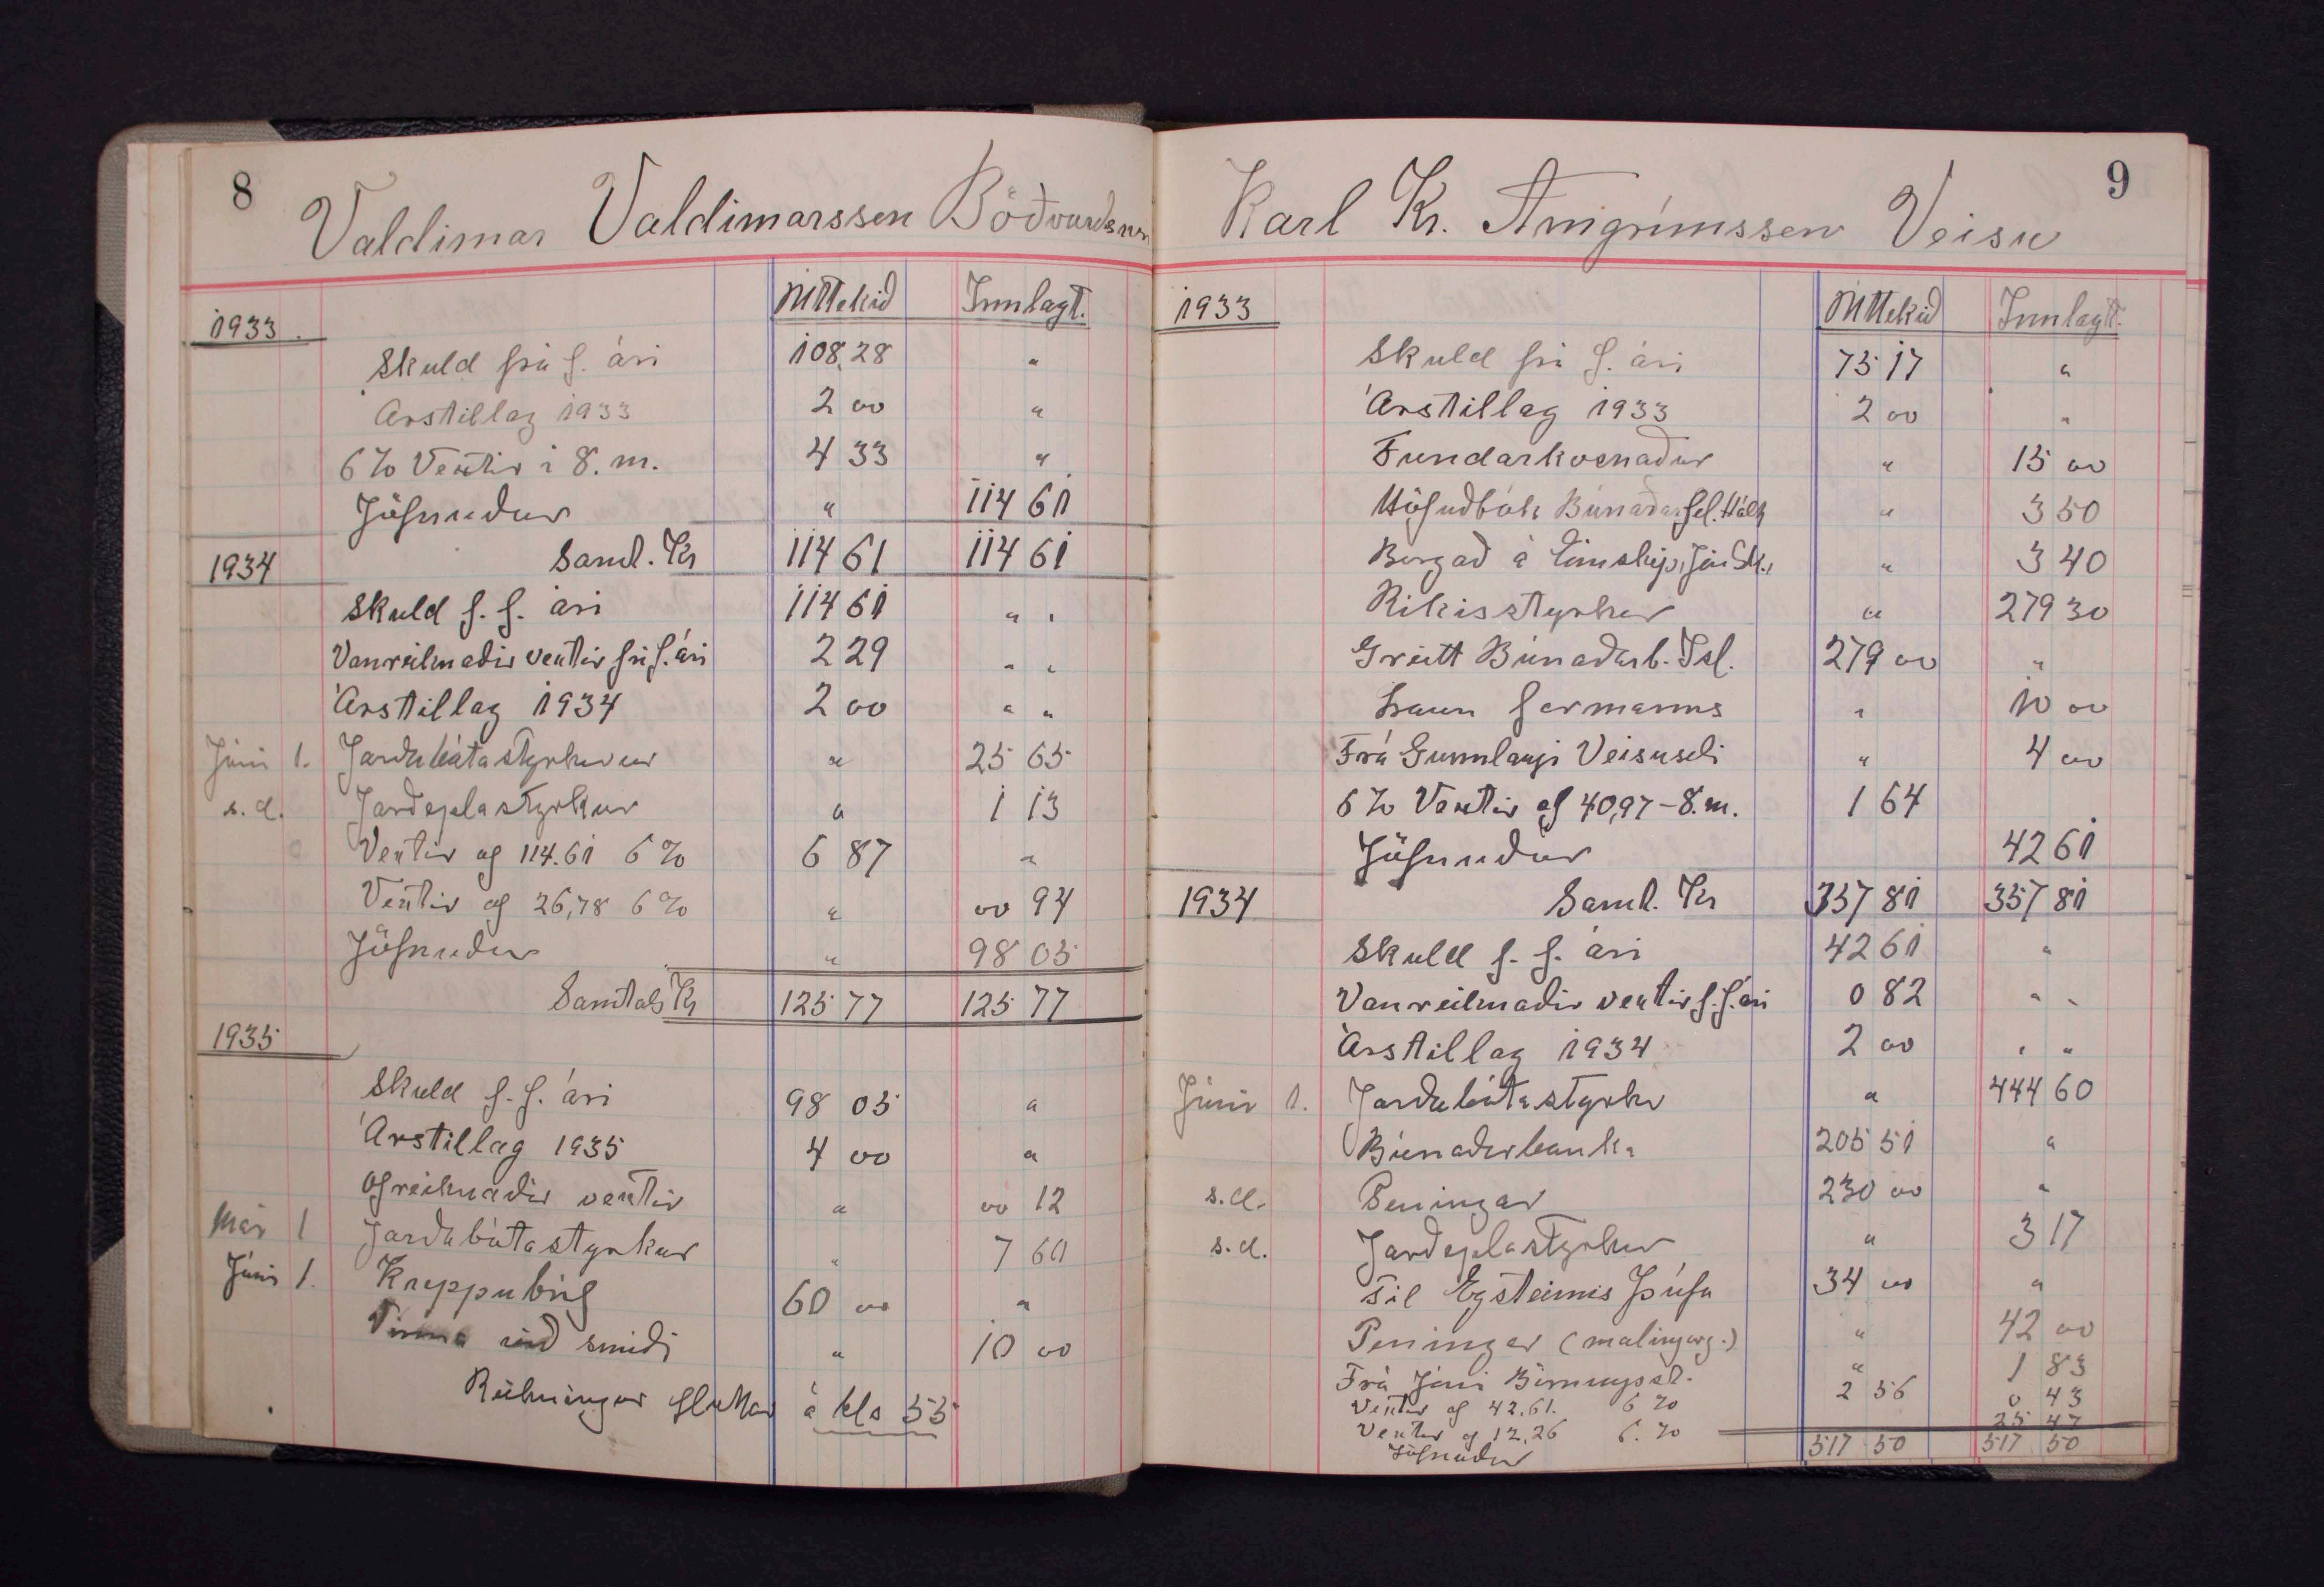 8
Valdimar Valdimarssen Böðvarsnesi
Úttekið Innlagt.
1933.
Skuld frá f. ári 108,28 "
Árstillag 1933 2 00 "
6% Vextir í 8. m. 4 33 "
Jöfnuður " 114 61
Samt. Kr 114 61 114 61
1934
Skuld f. f. ári 114 61 " "
Vanreiknaðir vextir frá f. ári 2 29 " "
Árstillag 1934 2 00 " "
Júni 1. Jarðabótastyrkur " 25 65
s.d. Jarðeplastyrkur " 1 13
Vextir af 114.61 6% 6 87 "
Vextir af 26,78 6% " 00 94
Jöfnuður " 98 05
Samtals Kr 125 77 125 77
1935
Skuld f. f. ári 98 05 "
Árstillag 1935 4 00 "
Ofreiknaðir vextir " 00 12
Maí 1 Jarðabótastyrkur " 7 60
Júni 1. Kreppubréf 60 00 "
Vinna við smíði " 10 00
Reikningur fluttur á bls 53
9
Karl Kr. Arngrímssen Veisu
Úttekið Innlagt.
1933
Skuld frá f. ári 75 17 "
Árstillag 1933 2 00 "
Fundarkosnaður " 15 00
Höfuðbók Búnaðarfel. Hálsh " 3 50
Borgað á Eimskip, " 3 40
Ríkisstyrkur " 279 30
Greitt Búnaðarb. Ísl. 279 00 "
Laun formanns " 10 00
Frá Gunnlaugi Veisuseli " 4 00
6% Vextir af 40,97 - 8. m. 1 64
Jöfnuður 42 61
Samt. Kr 357 81 357 81
1934
Skuld f. f. ári 42 61 "
Vanreiknaðir vextir f. f. ári 0 82 " "
Árstillag 1934 2 00 " "
Júni 1. Jarðabótastyrkr " 444 60
Búnaðarbanka 205 51 "
s.d. Peningar 230 00 "
s.d. Jarðeplastyrkur " 3 17
Til Eysteinis Þúfu 34 00 "
Peningar (malingarg.) " 42 00
Frá Jóni " 1 83
Vextir af 42.61. 6% 2 56 0 43
Vextir af 12,26 6.% 25 47
Jöfnuður 517 50 517 50